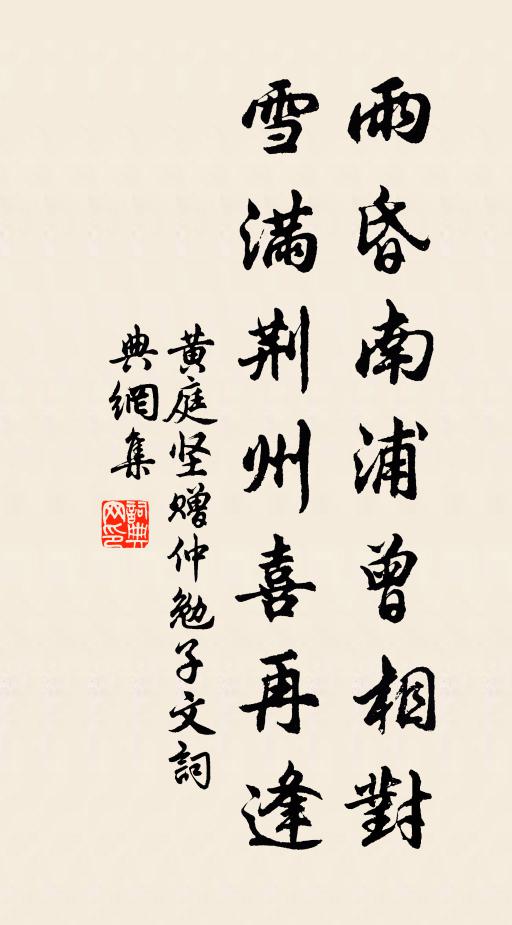 雨昏南浦曾相對
雪滿荆州喜再逢
黄庭坚贈仲勉子文詞
典網集
詞典网印